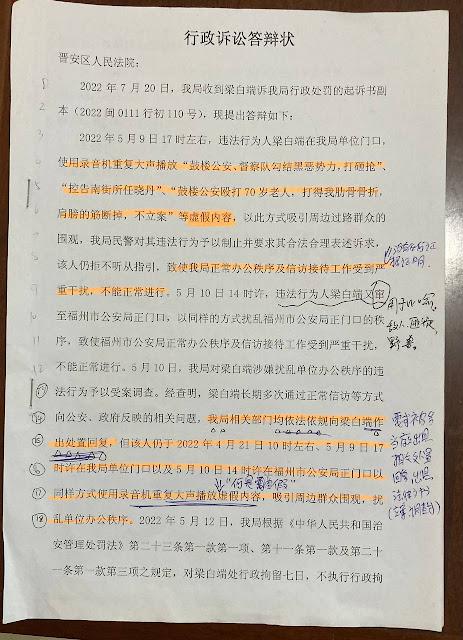 行政诉讼答辩状
晋安区人民法院：
2022 年 7 月 20 日，我局收到梁白端诉我局行政处罚的起诉书副
本（2022 闽 0111 行初 110 号），现提出答辩如下：
2022 年 5 月 9 日 17 时左右，违法行为人梁白端在我局单位门口，
使用录音机重复大声播放“鼓楼公安、督察队勾结黑恶势力，打砸抢”、
“控告南街所任晓丹”、“鼓楼公安殴打 70 岁老人，打得我肋骨骨折，
肩膀的筋断掉，不立案”等虚假内容，以此方式吸引周边过路群众的
围观，我局民警对其违法行为予以制止并要求其合法合理表述诉求，
该人仍拒不听从指引，致使我局正常办公秩序及信访接待工作受到严
重干扰，不能正常进行。5 月 10 日 14 时许，违法行为人梁白端又窜
至福州市公安局正门口，以同样的方式扰乱福州市公安局正门口的秩
序，致使福州市公安局正常办公秩序及信访接待工作受到严重干扰，
不能正常进行。5 月 10 日，我局对梁白端涉嫌扰乱单位办公秩序的违
法行为予以受案调查。经查明，梁白端长期多次通过正常信访等方式
向公安、政府反映的相关问题，我局相关部门均依法依规向梁白端作
出处置回复，但该人仍于 2022 年 4 月 21 日 10 时左右、5 月 9 日 17
时许在我局单位门口以及 5 月 10 日 14 时许在福州市公安局正门口以
“何是虚假”
同样方式使用录音机重复大声播放虚假内容，吸引周边群众围观，扰
乱单位办公秩序。2022 年 5 月 12 日，我局根据《中华人民共和国治
安管理处罚法》第二十三条第一款第一项、第十一条第一款及第二十
一条第一款第三项之规定，对梁白端处行政拘留七日，不执行行政拘
用于比喻
敌人、匪徒
野兽